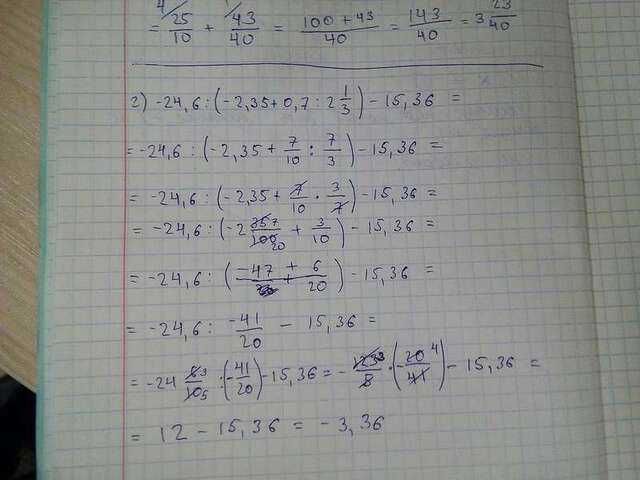 4 1
= 25/10 + 43/40 = 100 + 43/40 = 143/40 = 3 23/40
2) -24,6 : (-2,35 + 0,7 : 2 1/3) - 15,36 =
= -24,6 : (-2,35 + 7/10 : 7/3) - 15,36 =
= -24,6 : (-2,35 + 7/10 · 3/7) - 15,36 =
= -24,6 : (-2 35 7/100 20 + 3/10) - 15,36 =
= -24,6 : (-47 + 6/20) - 15,36 =
= -24,6 : -41/20 - 15,36 =
= -24 6 3/10 5 : (-41/20) - 15,36 = - 123 3/5 · (-20 4/41) - 15,36 =
= 12 - 15,36 = -3,36